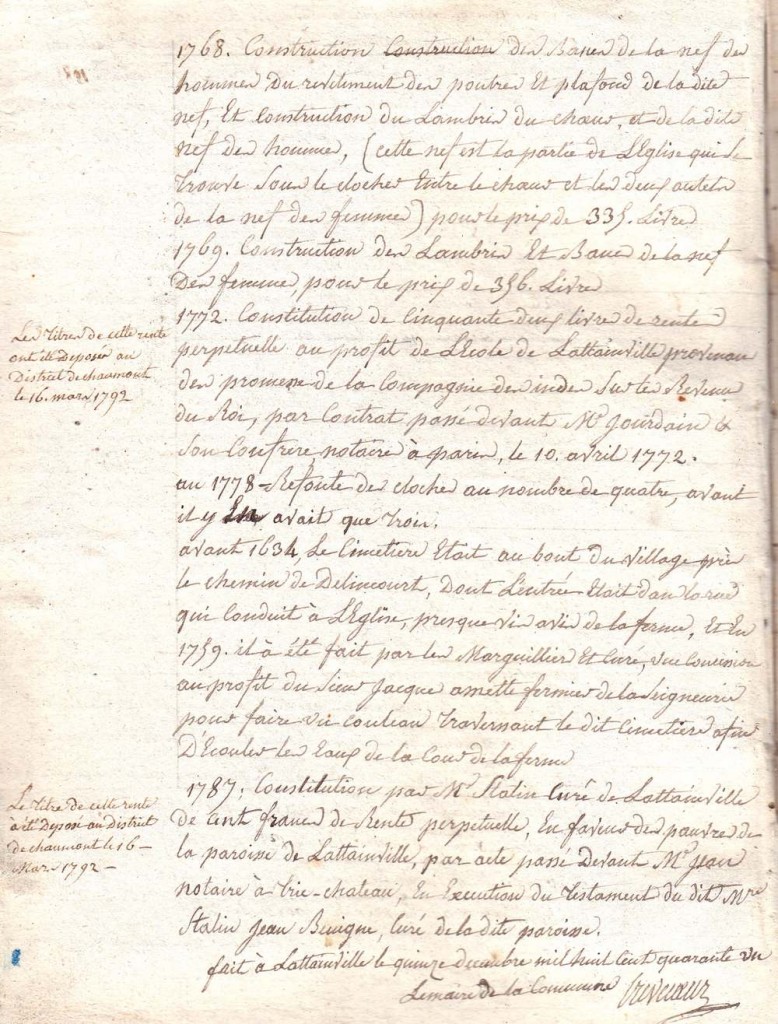 1768. Construction Construction des Bancs de la nef des
hommes du revêtiment des poutres Et plafond de la dite
nef, Et construction du Lambris du chœur, et de la dite
nef des hommes, (cette nef est la partie de L'Eglise qui se
trouve sous le clocher Entre le chœur et les deux autels
de la nef des femmes) pour le prix de 335. Livres
1769. Construction des Lambris Et Bancs de la nef
Des femmes, pour le prix de 356. Livres
1772. Constitution de Cinquante deux livres de rente
Les titres de cette rente
ont été Déposés au
District de chaumont
le 16. mars 1792
perpetuelle au profit de L'Ecole de Lattainville provenan
des promesse de la Compagnie des indes Sur les Revenus
du Roi, par Contrat passé devant Me Jourdain &
son Confrere notaire à paris, le 10. avril 1772.
au 1778 = Refonte des cloches au nombre de quatre, avant
il y avait que trois.
avant 1634, Le Cimetiere Etait au bout du village près
le chemin de Delincourt, Dont L'entrée Etait dans la rue
qui Conduit à L'Eglise, presque vis avis de la ferme, Et En
1759. il à été fait par les Marguilliers Et Curé, une Concession
au profit du Sieur Jacque amette fermier de la Seigneurie
pour faire un couleau traversant le dit Cimetiere afin
D'Ecouler les Eaux de la Cour de la ferme
1787. Constitution par Mr Stalin Curé de Lattainville
Le titre de cette rente
à été Deposé au District
de chaumont le 16 =
Mars 1792 =
de Cent francs de Rente perpetuelle, En faveur des pauvres de
la paroisse de Lattainville, par acte passé Devant Me Jean
notaire à trie-chateau, En Execution du testament du dit Mre
Stalin Jean Benigne, Curé de la dite paroisse.
fait à Lattainville le quinze decembre mil huit Cent quarante un
Le maire de la Commune Crevecœur